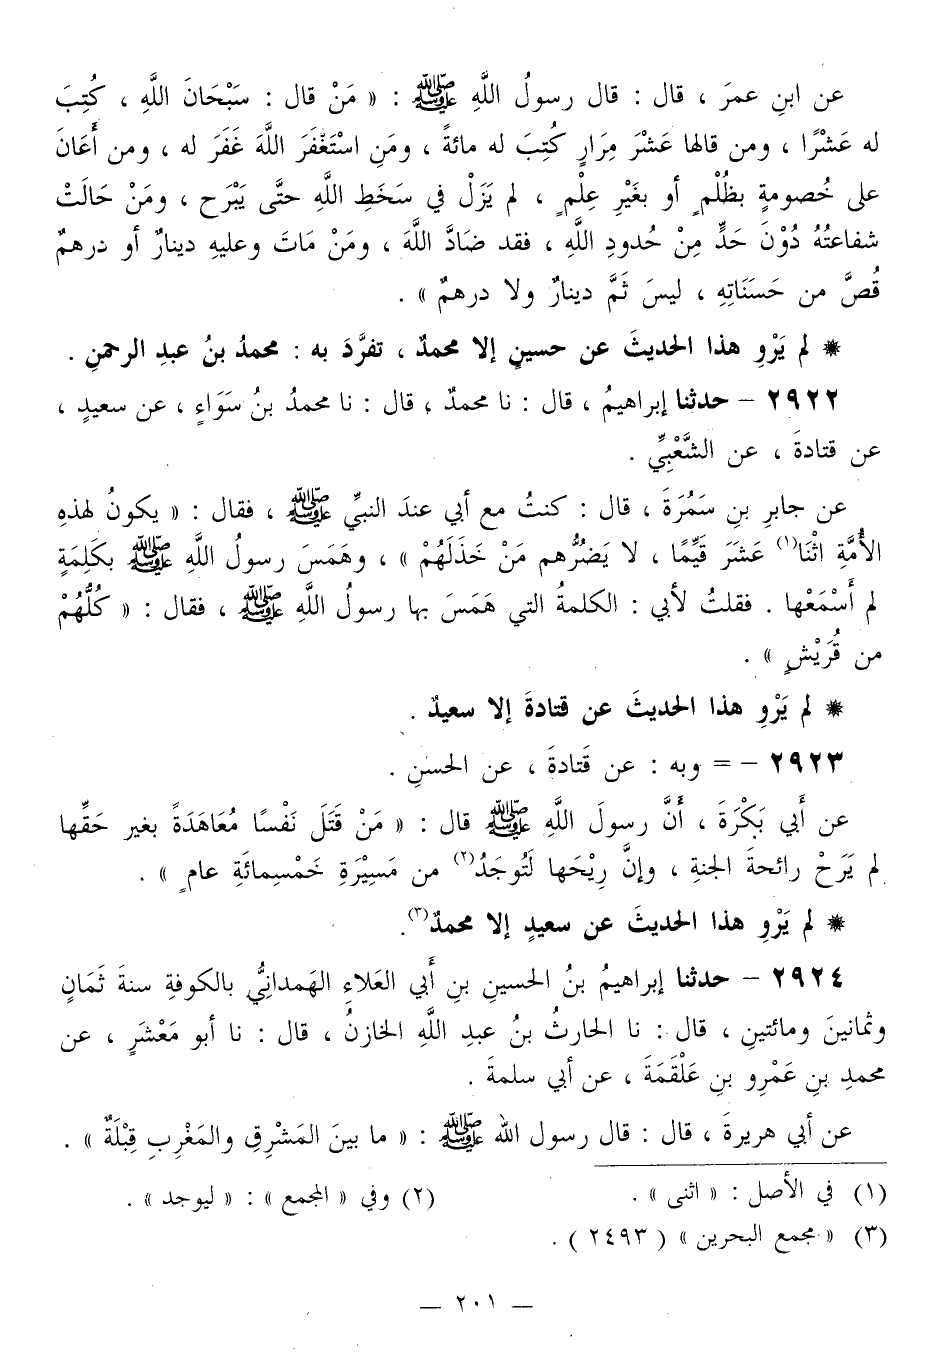 عن ابنِ عمرَ ، قال : قال رسولُ اللَّهِ ﷺ : « مَنْ قال : سَبْحَانَ اللَّهِ ، كُتِبَ
له عَشْرًا ، ومن قالها عَشْرَ مِرَارٍ كُتِبَ له مائةً ، ومَنِ اسْتَغْفَرَ اللَّهَ غَفَرَ له ، ومن أَعَانَ
على خُصومةٍ بظُلْمٍ أو بغَيْرِ عِلْمٍ ، لم يَزَلْ في سَخَطِ اللَّهِ حتَّى يَبْرَح ، ومَنْ حَالَتْ
شفاعتُهُ دُوْنَ حَدٍّ مِنْ حُدودِ اللَّهِ ، فقد ضَادَّ اللَّهَ ، ومَنْ مَاتَ وعليهِ دينارٌ أو درهمٌ
قُصَّ من حَسَنَاتِهِ ، ليسَ ثَمَّ دينارٌ ولا درهمٌ » .
* لم يَرْوِ هذا الحديثَ عن حسينٍ إلا محمدٌ ، تفرَّدَ به : محمدُ بنُ عبدِ الرحمنِ .
٢٩٢٢ – حدثنا إبراهيمُ ، قال : نا محمدٌ ، قال : نا محمدُ بنُ سَوَاءٍ ، عن سعيدٍ ،
عن قتادةَ ، عن الشَّعْبِيِّ .
عن جابرِ بنِ سَمُرَةَ ، قال : كنتُ مع أبي عندَ النبيِّ ﷺ ، فقال : « يكونُ لهذهِ
الأُمَّةِ اثْنَا(١) عَشَرَ قَيِّمًا ، لا يَضُرُّهم مَنْ خَذَلَهُمْ » ، وهَمَسَ رسولُ اللَّهِ ﷺ بكَلِمَةٍ
لم أَسْمَعْها . فقلتُ لأبي : الكلمةُ التي هَمَسَ بها رسولُ اللَّهِ ﷺ ، فقال : « كلُّهُمْ
من قُرَيْشٍ » .
* لم يَرْوِ هذا الحديثَ عن قتادةَ إلا سعيدٌ .
٢٩٢٣ – = وبه : عن قَتادةَ ، عن الحسنِ .
عن أَبي بَكْرَةَ ، أَنَّ رسولَ اللَّهِ ﷺ قال : « مَنْ قَتَلَ نَفْسًا مُعَاهَدَةً بغير حَقِّها
لم يَرَحْ رائحةَ الجنةِ ، وإنَّ رِيْحَها لَتُوجَدُ(٢) من مَسِيْرَةِ خَمْسِمائَةِ عامٍ » .
* لم يَرْوِ هذا الحديثَ عن سعيدٍ إلا محمدٌ(٣).
٢٩٢٤ – حدثنا إبراهيمُ بنُ الحسينِ بنِ أَبي العَلاءِ الهَمدانِيُّ بالكوفةِ سنةَ ثَمَانٍ
وثمانينَ ومائتينِ ، قال : نا الحارثُ بنُ عبدِ اللَّهِ الخازنُ ، قال : نا أبو مَعْشَرٍ ، عن
محمدِ بنِ عَمْرِو بنِ عَلْقَمَةَ ، عن أبي سلمةَ .
عن أبي هريرةَ ، قال : قال رسول الله ﷺ : « ما بينَ المَشْرِقِ والمَغْرِبِ قِبْلَةٌ » .
(١) في الأصل : « اثنى » . (٢) وفي « المجمع » : « ليوجد » .
(٣) « مجمع البحرين » ( ٢٤٩٣ ) .
— ٢٠١ —